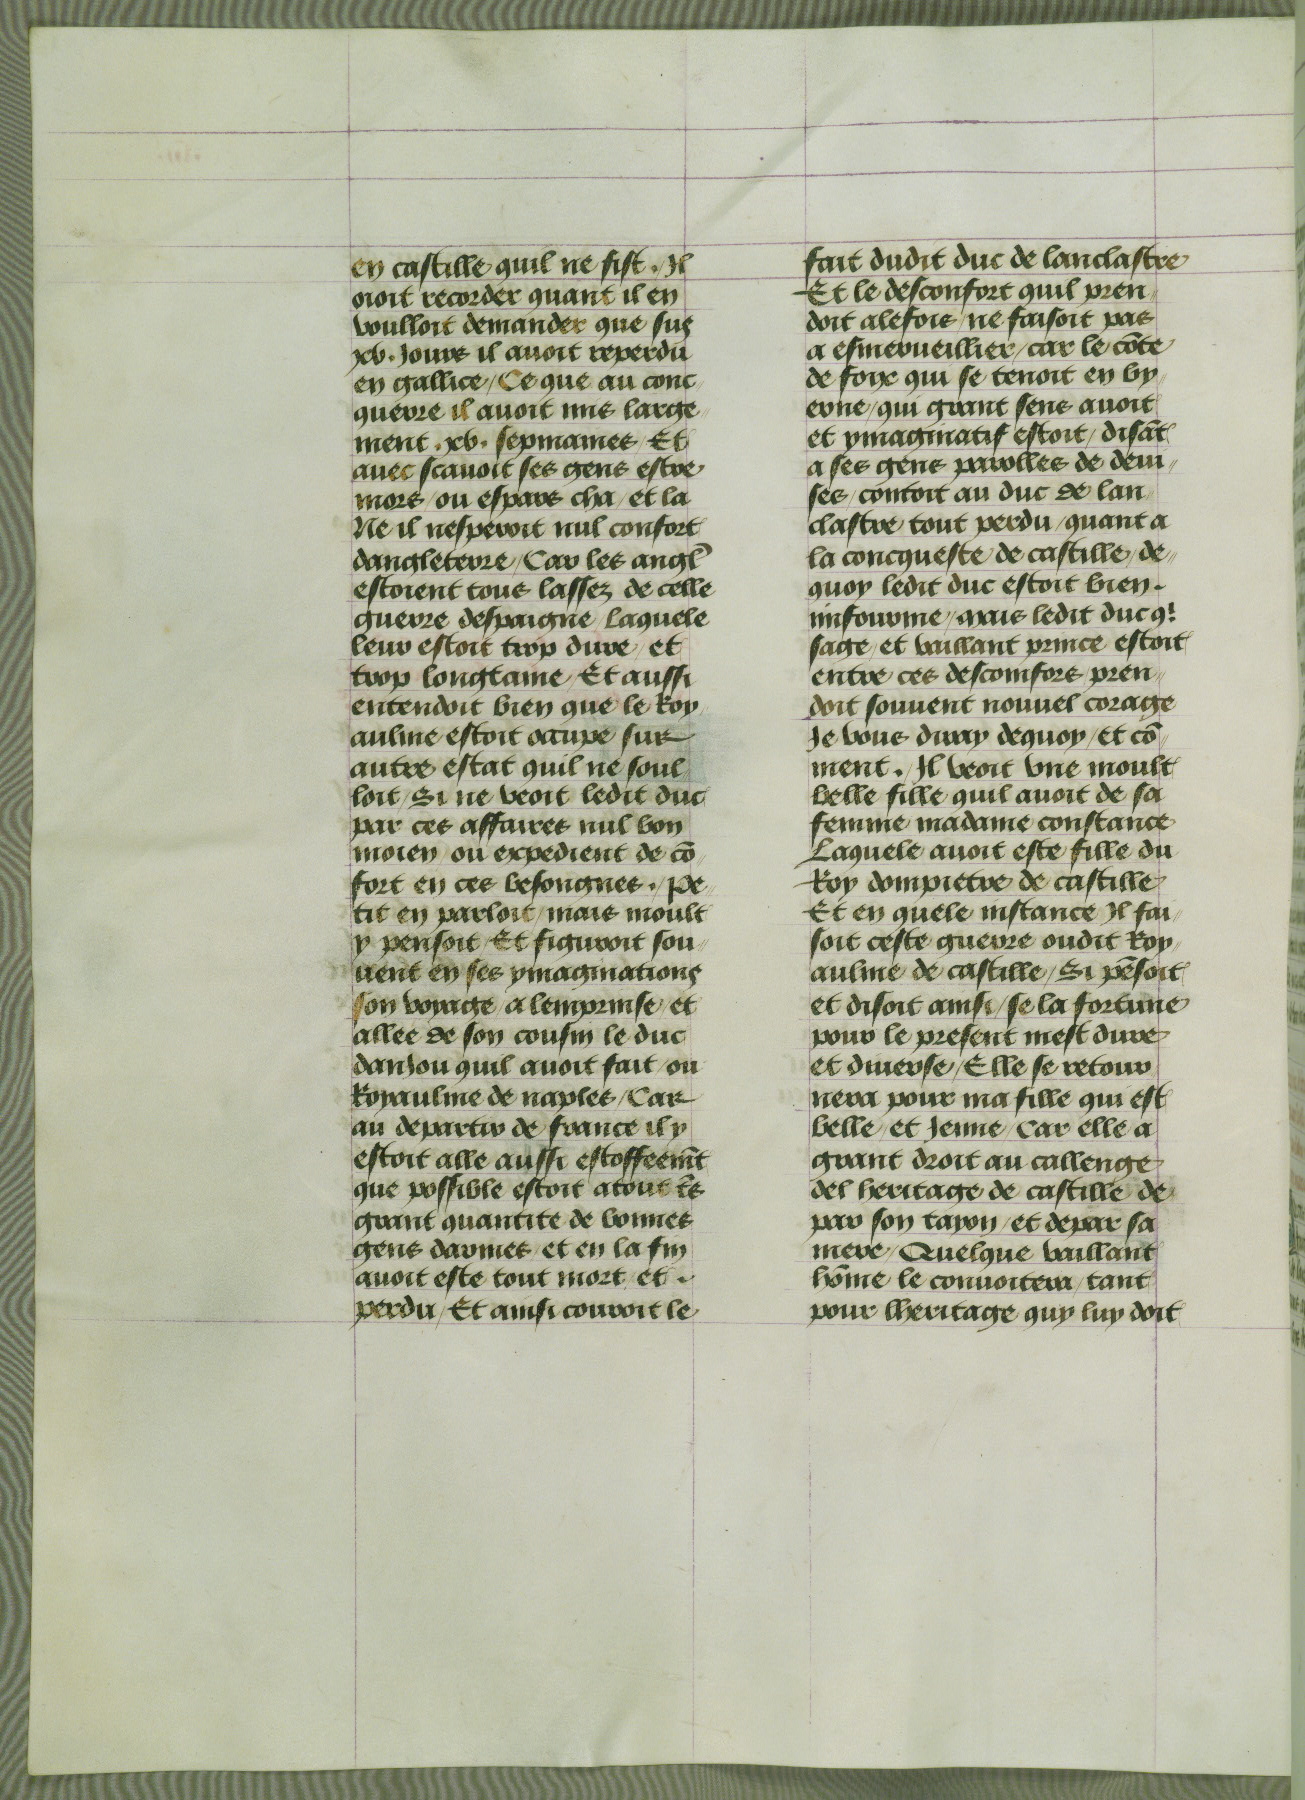 en castille quil ne fist. Il
oioit recorder quant il en
voulloit demander que sus
xv. Jours il auoit reperdu
en gallice / Ce que au conc
querre il auoit mis large
ment .xv. sepmaines / Et
auec scauoit ses gens estre
mors / ou espars cha / et la
Ne il nesperoit nul confort
dangleterre / Car les angl'
estoient tous lassez de celle
guerre despaigne / laquele
leur estoit trop dure / et
trop longtaine / Et aussi
entendoit bien que le Roy
aulme estoit ocupe sur
autre estat quil ne soul
loit / Si ne veoit ledit duc
par ces affaires nul bon
moien / ou expedient de cō
fort en ces besongnes. Pe
tit en parloit / mais moult
y pensoit / Et figuroit sou
uent en ses ymaginations
son voyage / a lemprinse / et
allee de son cousin le duc
danjou quil auoit fait / ou
Royaulme de naples / Car
au departir de france il y
estoit alle aussi estoffeemt̄
que possible estoit atout t̄s
grant quantite de bonnes
gens darmes / et en la fin
auoit este tout mort / et .
perdu / Et ainsi couroit le
fait dudit duc de lanclastre
Et le desconfort quil pren
doit alefois / ne faisoit pas
a esmerueillier / car le cōte
de foix qui se tenoit en by
erne / qui grant sens auoit
et ymaginatif estoit / disāt
a ses gens parolles de deui
ses / contoit au duc de lan
clastre tout perdu / quant a
la concqueste de castille / de
quoy ledit duc estoit bien.
infourme / mais ledit duc qⁱ
sage / et vaillant prince estoit
entre ces descomfors pren
doit souuent nouuel corage
Je vous diray dequoy / et cō
ment. Il veoit vne moult
belle fille quil auoit de sa
femme madame constance
Laquele auoit este fille du
Roy dompietre de castille
Et en quele instance Il fai
soit ceste guerre oudit Roy
aulme de castille / Si pēsoit
et disoit ainsi / se la fortune
pour le present mest dure
et diuerse / Elle se retour
nera pour ma fille qui est
belle / et Jenne / Car elle a
grant droit au callenge
del heritage de castille de
par son tayon / et depar sa
mere / Quelque vaillant
hōme le conuoitera / tant
pour lheritage quy luy doit